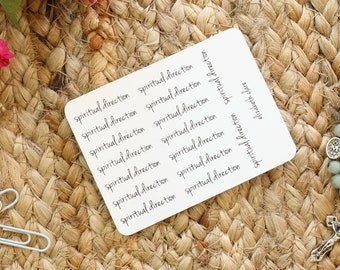 spiritual direction spiritual direction
spiritual direction spiritual direction
spiritual direction spiritual direction
spiritual direction spiritual direction
spiritual direction spiritual direction
spiritual direction spiritual direction
spiritual direction spiritual direction
spiritual direction
spiritual direction